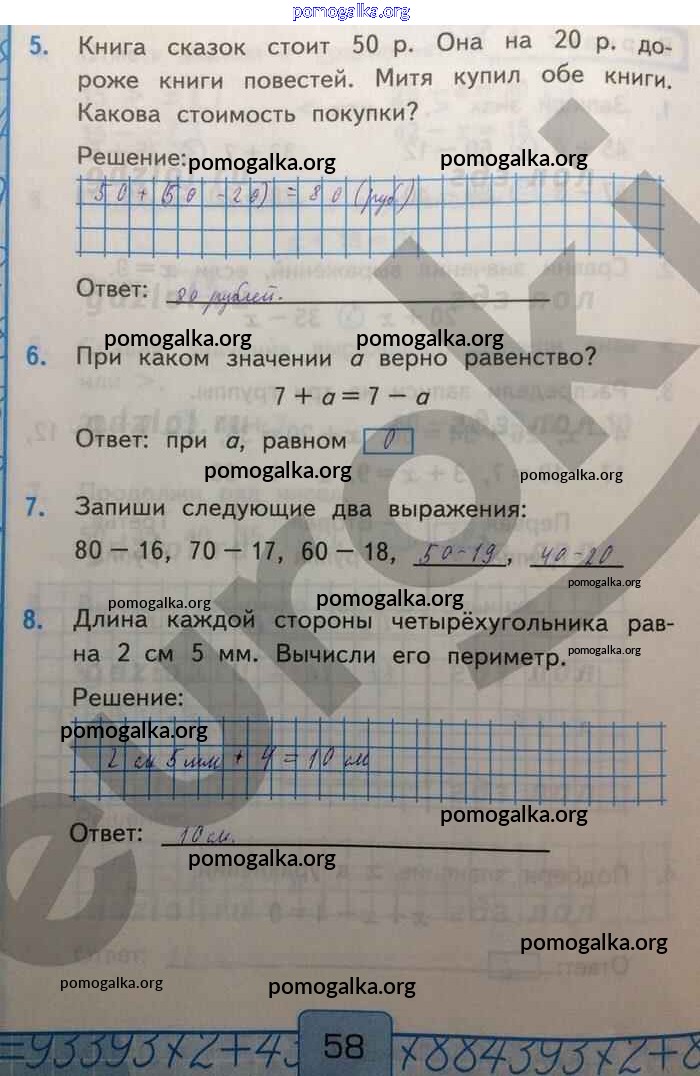 pomogalka.org
5. Книга сказок стоит 50 р. Она на 20 р. до-
роже книги повестей. Митя купил обе книги.
Какова стоимость покупки?
Решение: pomogalka.org pomogalka.org
50 + (50 - 20) = 80 (руб)
Ответ: 80 рублей.
pomogalka.org pomogalka.org
6. При каком значении а верно равенство?
7 + а = 7 − а
Ответ: при а, равном 0
pomogalka.org pomogalka.org
7. Запиши следующие два выражения:
80 − 16, 70 − 17, 60 − 18, 50-19, 40-20
pomogalka.org
pomogalka.org pomogalka.org
8. Длина каждой стороны четырёхугольника рав-
на 2 см 5 мм. Вычисли его периметр. pomogalka.org
Решение:
pomogalka.org
2 см 5 мм + 4 = 10 см
pomogalka.org
Ответ: 10 см.
pomogalka.org
pomogalka.org
pomogalka.org pomogalka.org
=93393x2+43 58 x884393x2+8
euroki